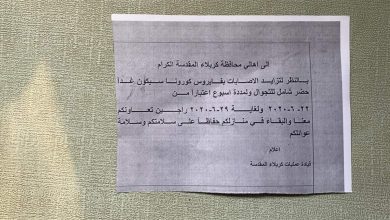 الى اهالي محافظة كربلاء المقدسة الكرام
بالنظر لتزايد الاصابات بفايروس كورونا سيكون غدا
حضر شامل للتجوال ولمدة اسبوع اعتبارا من
٢٢-٦-٢٠٢٠ ولغاية ٢٩-٦-٢٠٢٠ راجين تعاونكم
معنا والبقاء في منازلكم حفاظا على سلامتكم وسلامة
عوائلكم
اعلام
قيادة عمليات كربلاء المقدسة